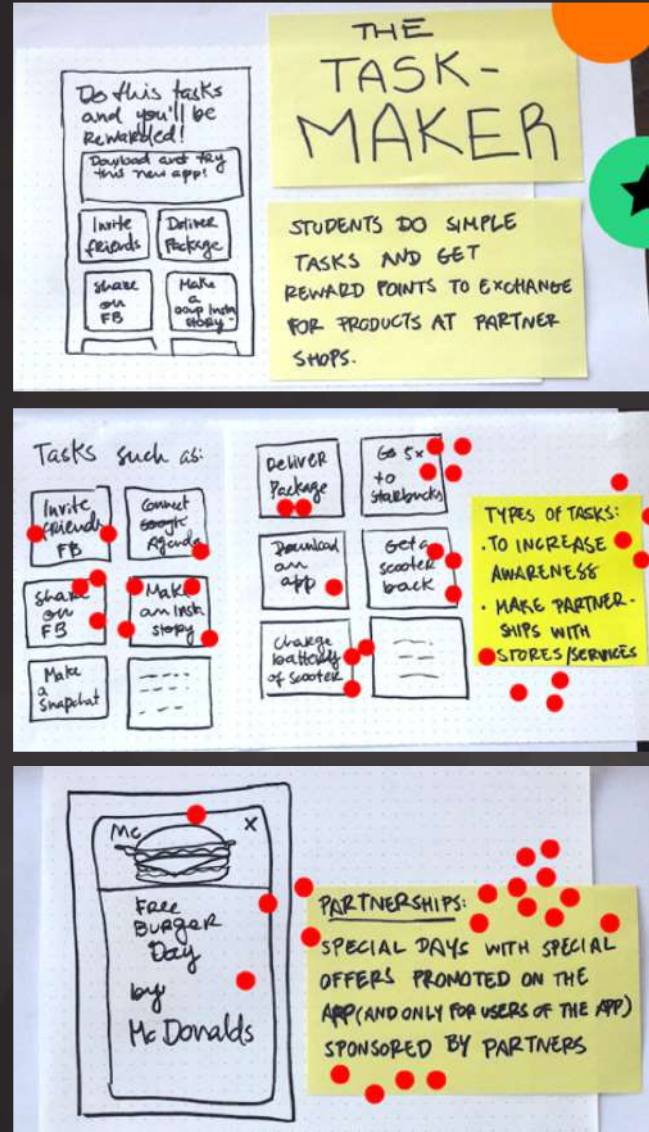 THE
TASK-
MAKER
Do this tasks
and you'll be
Rewarded!
Download and try
this new app!
Invite
friends
Deliver
Package
Share
on
FB
Make
a
Insta
story
STUDENTS DO SIMPLE
TASKS AND GET
REWARD POINTS TO EXCHANGE
FOR PRODUCTS AT PARTNER
SHOPS.
Tasks such as:
Invite
friends
FB
Connect
Google
Agenda
Share
on
FB
Make
an Insta
story
Make
a
Snapchat
Deliver
Package
Go 5x
to
Starbucks
Download
an
app
Get a
scooter
back
Charge
battery
of scooter
TYPES OF TASKS:
• TO INCREASE
AWARENESS
• MAKE PARTNER-
SHIPS WITH
STORES/SERVICES
Mc
X
Free
Burger
Day
by
McDonalds
PARTNERSHIPS:
SPECIAL DAYS WITH SPECIAL
OFFERS PROMOTED ON THE
APP (AND ONLY FOR USERS OF THE APP)
SPONSORED BY PARTNERS